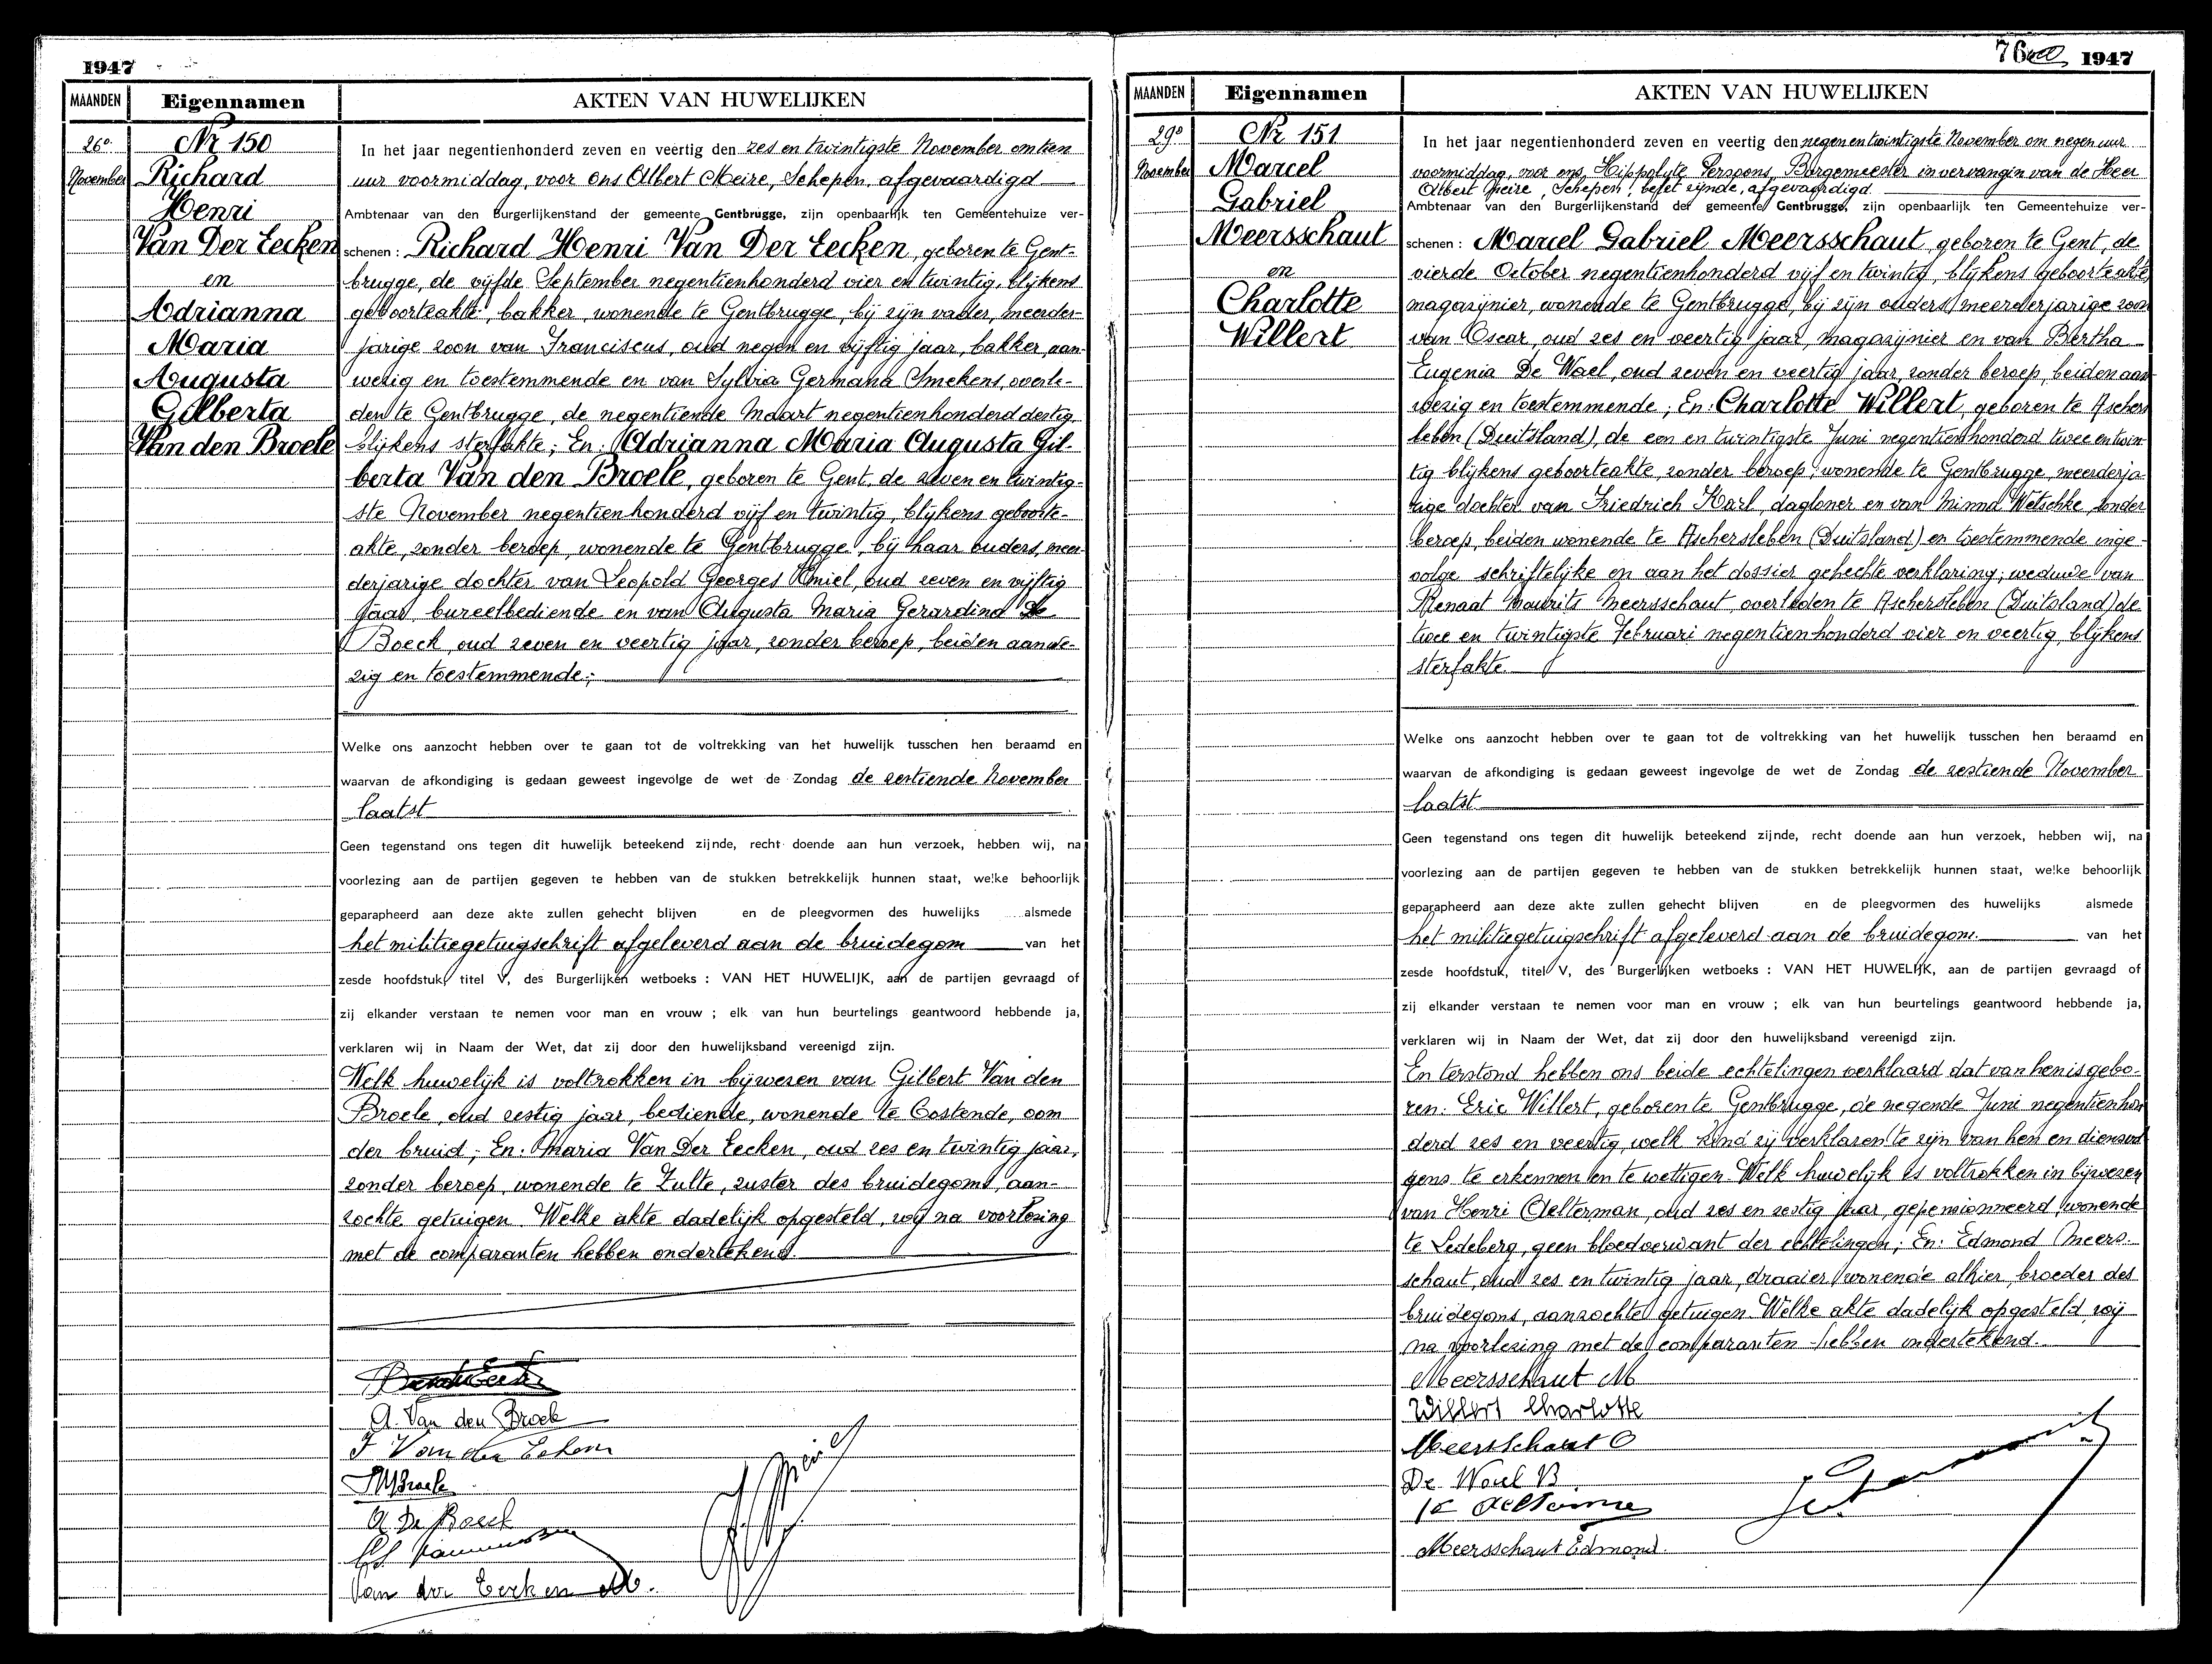 1947
MAANDEN
Eigennamen
AKTEN VAN HUWELIJKEN
26e
November
Nr 150
Richard
Henri
Van Der Eecken
en
Adrianna
Maria
Augusta
Gilberta
Van den Broele
In het jaar negentienhonderd zeven en veertig den zes en twintigste November om tien
uur voormiddag, voor ons Albert Meire, Schepen, afgevaardigd
Ambtenaar van den Burgerlijkenstand der gemeente Gentbrugge, zijn openbaarlijk ten Gemeentehuize ver-
schenen : Richard Henri Van Der Eecken, geboren te Gent-
brugge, de vijfde September negentienhonderd vier en twintig, blijkens
geboorteakte, bakker, wonende te Gentbrugge, bij zijn vader, meerder-
jarige zoon van Franciscus, oud negen en vijftig jaar, bakker, aan-
wezig en toestemmende en van Sylvia Germana Smekens, overle-
den te Gentbrugge, de negentiende Maart negentienhonderd dertig,
blijkens sterfakte; En: Adrianna Maria Augusta Gil-
berta Van den Broele, geboren te Gent, de zeven en twintig-
ste November negentienhonderd vijf en twintig, blijkens geboorte-
akte, zonder beroep, wonende te Gentbrugge, bij haar ouders, meer-
derjarige dochter van Leopold Georges Emiel, oud zeven en vijftig
jaar, bureelbediende en van Augusta Maria Gerardina De
Boeck, oud zeven en veertig jaar, zonder beroep, beiden aanwe-
zig en toestemmende;
Welke ons aanzocht hebben over te gaan tot de voltrekking van het huwelijk tusschen hen beraamd en
waarvan de afkondiging is gedaan geweest ingevolge de wet de Zondag de zestiende November
laatst
Geen tegenstand ons tegen dit huwelijk beteekend zijnde, recht doende aan hun verzoek, hebben wij, na
voorlezing aan de partijen gegeven te hebben van de stukken betrekkelijk hunnen staat, welke behoorlijk
geparapheerd aan deze akte zullen gehecht blijven en de pleegvormen des huwelijks alsmede
het militiegetuigschrift afgeleverd aan de bruidegom van het
zesde hoofdstuk, titel V, des Burgerlijken wetboeks : VAN HET HUWELIJK, aan de partijen gevraagd of
zij elkander verstaan te nemen voor man en vrouw ; elk van hun beurtelings geantwoord hebbende ja,
verklaren wij in Naam der Wet, dat zij door den huwelijksband vereenigd zijn.
Welk huwelijk is voltrokken in bijwezen van Gilbert Van den
Broele, oud zestig jaar, bediende, wonende te Oostende, oom
der bruid; En: Maria Van Der Eecken, oud zes en twintig jaar,
zonder beroep, wonende te Zulte, zuster des bruidegoms, aan-
zochte getuigen. Welke akte dadelijk opgesteld, wij na voorlezing
met de comparanten hebben ondertekend.
A. Van den Broele
F Van der Eeken
A De Boeck
Van der Eecken M.
76 1947
MAANDEN
Eigennamen
AKTEN VAN HUWELIJKEN
29e
November
Nr 151
Marcel
Gabriel
Meersschaut
en
Charlotte
Willert
In het jaar negentienhonderd zeven en veertig den negen en twintigste November om negen uur
voormiddag, voor ons, Hippolyte Persyons, Burgemeester in vervangin van de Heer
Albert Meire, Schepen, belet zijnde, afgevaardigd.
Ambtenaar van den Burgerlijkenstand der gemeente Gentbrugge, zijn openbaarlijk ten Gemeentehuize ver-
schenen : Marcel Gabriel Meersschaut, geboren te Gent, de
vierde October negentienhonderd vijf en twintig, blijkens geboorteakte,
magazijnier, wonende te Gentbrugge, bij zijn ouders, meerderjarige zoon
van Oscar, oud zes en veertig jaar, magazijnier en van Bertha
Eugenia De Wael, oud zeven en veertig jaar, zonder beroep, beiden aan-
wezig en toestemmende; En: Charlotte Willert, geboren te Aschers
leben (Duitsland), de een en twintigste Juni negentienhonderd twee en twin-
tig blijkens geboorteakte, zonder beroep, wonende te Gentbrugge, meerderja-
rige dochter van Friedrich Karl, dagloner en van Minna Wetschke, zonder
beroep, beiden wonende te Aschersleben (Duitsland) en toestemmende inge-
volge schriftelijke en aan het dossier gehechte verklaring; weduwe van
Renaat Maurits Meersschaut overleden te Aschersleben (Duitsland) de
twee en twintigste Februari negentienhonderd vier en veertig, blijkens
sterfakte.
Welke ons aanzocht hebben over te gaan tot de voltrekking van het huwelijk tusschen hen beraamd en
waarvan de afkondiging is gedaan geweest ingevolge de wet de Zondag de zestiende November
laatst
Geen tegenstand ons tegen dit huwelijk beteekend zijnde, recht doende aan hun verzoek, hebben wij, na
voorlezing aan de partijen gegeven te hebben van de stukken betrekkelijk hunnen staat, welke behoorlijk
geparapheerd aan deze akte zullen gehecht blijven en de pleegvormen des huwelijks alsmede
het militiegetuigschrift afgeleverd aan de bruidegom. van het
zesde hoofdstuk, titel V, des Burgerlijken wetboeks : VAN HET HUWELIJK, aan de partijen gevraagd of
zij elkander verstaan te nemen voor man en vrouw ; elk van hun beurtelings geantwoord hebbende ja,
verklaren wij in Naam der Wet, dat zij door den huwelijksband vereenigd zijn.
En terstond hebben ons beide echtelingen verklaard dat van hen is gebo-
ren: Eric Willert, geboren te Gentbrugge, de negende Juni negentienhon
derd zes en veertig, welk kind zij verklaren te zijn van hen en dienvol
gens te erkennen en te wettigen. Welk huwelijk is voltrokken in bijwezen
van Henri Aelterman, oud zes en zestig jaar, gepensionneerd, wonende
te Ledeberg, geen bloedverwant der echtelingen; En: Edmond Meers-
schaut, oud zes en twintig jaar, draaier, wonende alhier, broeder des
bruidegoms, aanzochte getuigen. Welke akte dadelijk opgesteld, wij
na voorlezing met de comparanten hebben ondertekend.
Meersschaut M
Willert Charlotte
Meersschaut O
De Wael B.
Meersschaut Edmond.